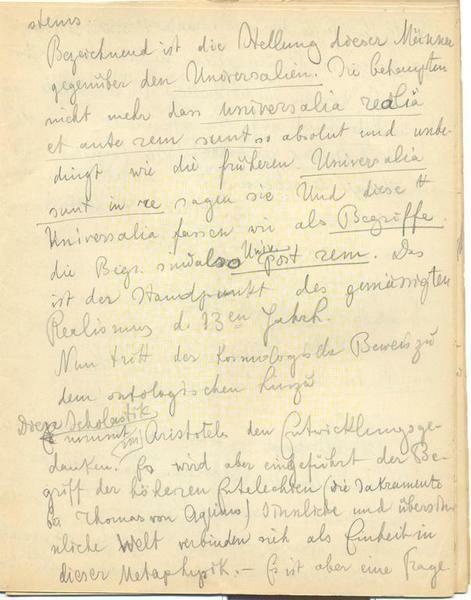 stems
Bezeichnend ist die Stellung dieser Männer
gegenüber den Universalien. Sie behaupten
nicht mehr dass universalia realia
et ante rem sunt so absolut und unbe-
dingt wie die früheren. Universalia
sunt in re sagen sie. Und diese
Universalia fassen wir als Begriffe.
die Begr. sind also Univ. post rem. Das
ist der Standpunkt des gemässigten
Realismus d. 13en Jahrh.
Nun tritt der Kosmologische Beweis zu
dem ontologischen hinzu
Diese Scholastik
nimmt Aristoteles den Entwicklungsge-
danken. Es wird aber eingeführt der Be-
griff der höheren Entelechien (die Sakramente
Thomas von Aquino) Sinnliche und übersin-
nliche Welt verbinden sich als Einheit in
dieser Metaphysik. — Es ist aber eine Frage